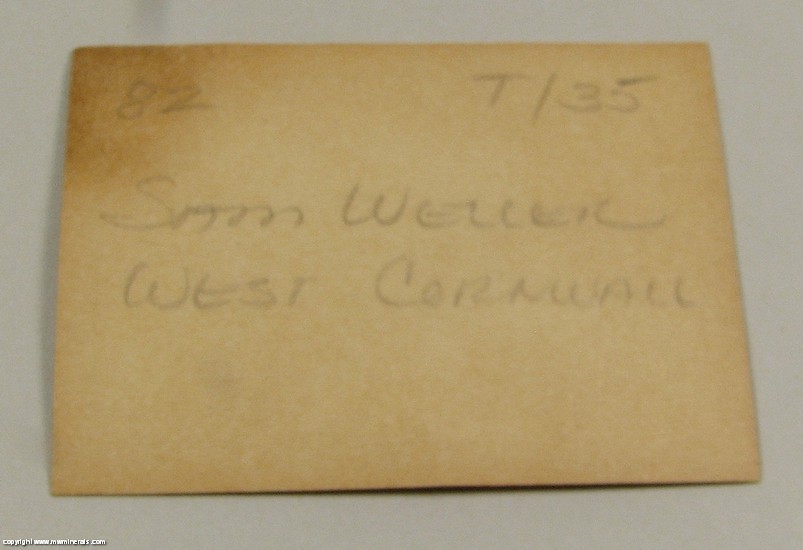 82 T/35
Sam Weller
West Cornwall
copyright www.mwminerals.com